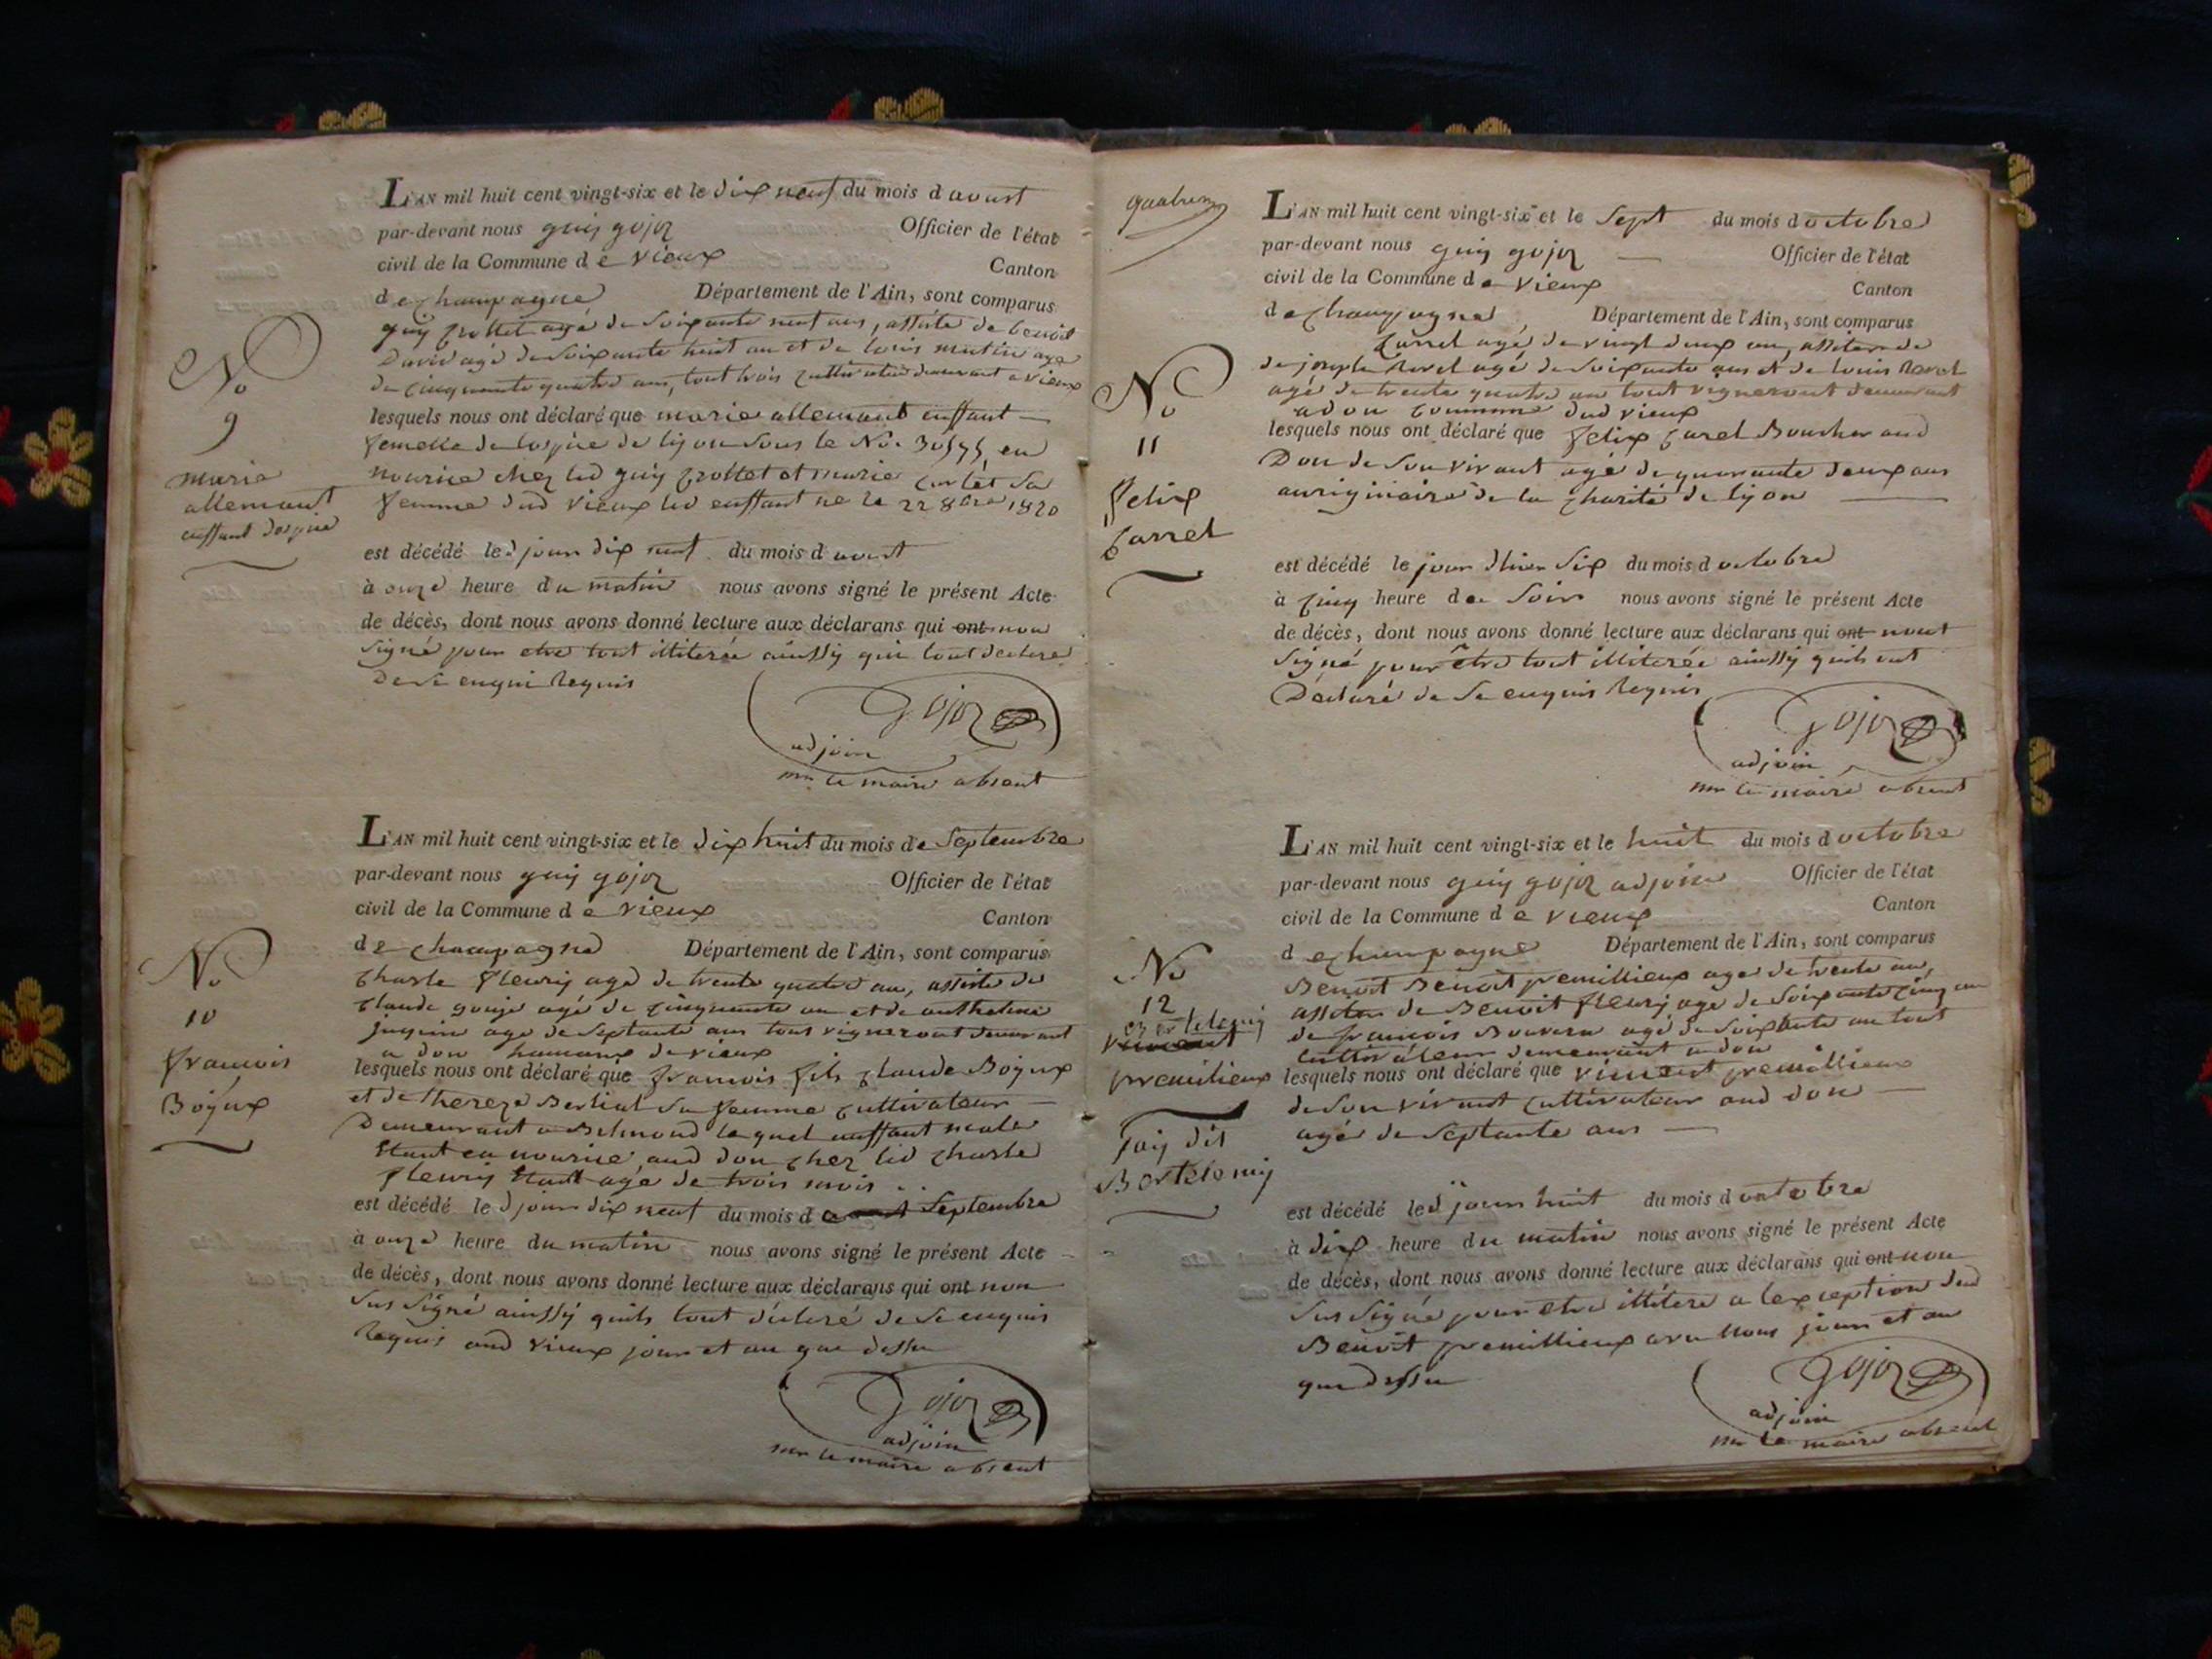 L'AN mil huit cent vingt-six et le dix neuf du mois d avust
par-devant nous guy gojoz Officier de l'état
civil de la Commune d e vieux Canton
de champagne Département de l'Ain, sont comparus
guy collet agé de soixante neuf ans, assiste de benoit
David agé de soixante huit an et de louis mutin age
de cinquante quatre ans, tout trois cultivateur demeurant a vieux
lesquels nous ont déclaré que marie allemant enffant
femelle de lospice de lyon sous le No. en
nourice chez led guy collet et marie sa
femme dud vieux led enffant ne le 22 8bre 1820
est décédé led jour dix neuf du mois d avust
à onze heure du matin nous avons signé le présent Acte
de décès, dont nous avons donné lecture aux déclarans qui ont non
signé pour etre tout illiterée ainssy qui lont declaré
De ce enqui Requis
gojoz
adjoin
mr le maire absent
No
9
marie
allemant
enffant dospice
L'AN mil huit cent vingt-six et le dix huit du mois de Septembre
par-devant nous guy gojoz Officier de l'état
civil de la Commune d e vieux Canton
de champagne Département de l'Ain, sont comparus
charle fleury agé de trente quatre an, assiste de
claude gouje agé de cinquante an et de anthelme
juquin age de septante ans tous vigneront demeurant
a don de vieux
lesquels nous ont déclaré que francois fils claude Bojux
et de thereze Bertiat sa femme cultivateur
Demeurant a Belmond lequel enffant male
Etant en nourice aud don chez led charle
fleury Etant agé de trois mois
est décédé led jour dix neuf du mois d avust Septembre
à onze heure du matin nous avons signé le présent Acte
de décès, dont nous avons donné lecture aux déclarans qui ont non
sus signé ainssy quils lont déclaré de ce enquis
Requis aud vieux jour et an que dessu
gojoz
adjoin
mr le maire absent
No
10
francois
Bojux
L'AN mil huit cent vingt-six et le sept du mois d octobre
par-devant nous guy gojoz Officier de l'état
civil de la Commune d e vieux Canton
de champagne Département de l'Ain, sont comparus
carrel agé de vingt deux an, assiter de
de joseph Ravet agé de soixante ans et de louis Ravet
agé de trente quatre an tout vigneront demeurant
a don commune dud vieux
lesquels nous ont déclaré que felix carel Boucher aud
Don de son vivant agé de quarante deux ans
auriginaire de la charité de lyon
est décédé le jour dhier six du mois d octobre
à cinq heure de soir nous avons signé le présent Acte
de décès, dont nous avons donné lecture aux déclarans qui ont nont
signé pour être tout illiterée ainssy quils ont
Déclaré de ce enquis Requis
gojoz
adjoin
mr le maire absent
No
11
felix
carrel
L'AN mil huit cent vingt-six et le huit du mois d octobre
par-devant nous guy gojoz adjoin Officier de l'état
civil de la Commune d e vieux Canton
d e champagne Département de l'Ain, sont comparus
Benoit Benoit premillieux age de trente an,
assiter de Benoit fleury age de soixante cinq an
de francois Bouvem agé de soixante an tout
cultivateur demeurant a don
lesquels nous ont déclaré que vincent premillieux
de son vivant cultivateur aud don
agé de septante ans
est décédé led jour huit du mois d octobre
à dix heure du matin nous avons signé le présent Acte
de décès, dont nous avons donné lecture aux déclarans qui ont non
sus signé pour etre illitere a lexception dud
Benoit premillieux avec nous jour et an
que dessu
gojoz
adjoin
mr le maire absent
No
12
Bertelemy
vincent
premilieux
dit
Bertelemy